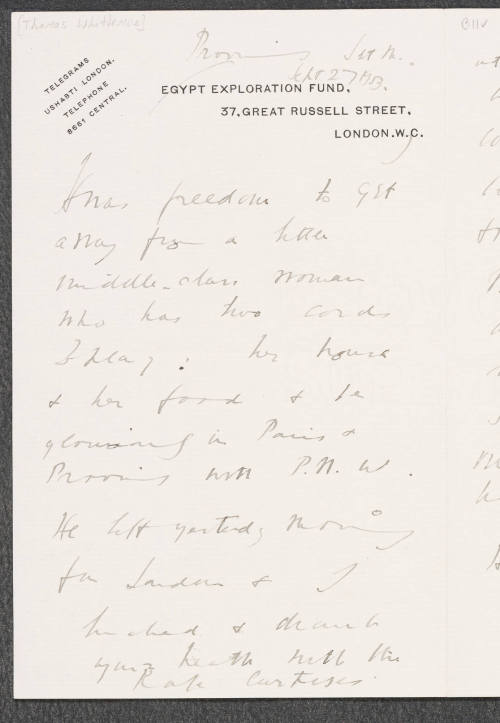 [Thomas Whittemore]
TELEGRAMS
USHABTI LONDON.
TELEPHONE
8661 CENTRAL.
Provins Sept 27 1913.
EGYPT EXPLORATION FUND,
37, GREAT RUSSELL STREET,
LONDON. W.C.
It was freedom to get
away from a little
middle-class woman
who has two cords
to play: her house
& her food & be
glorious in Paris &
Provins with P.N.W.
He left yesterday morning
for London & I
lunched & drank
your health with the
Ralph Curtises.